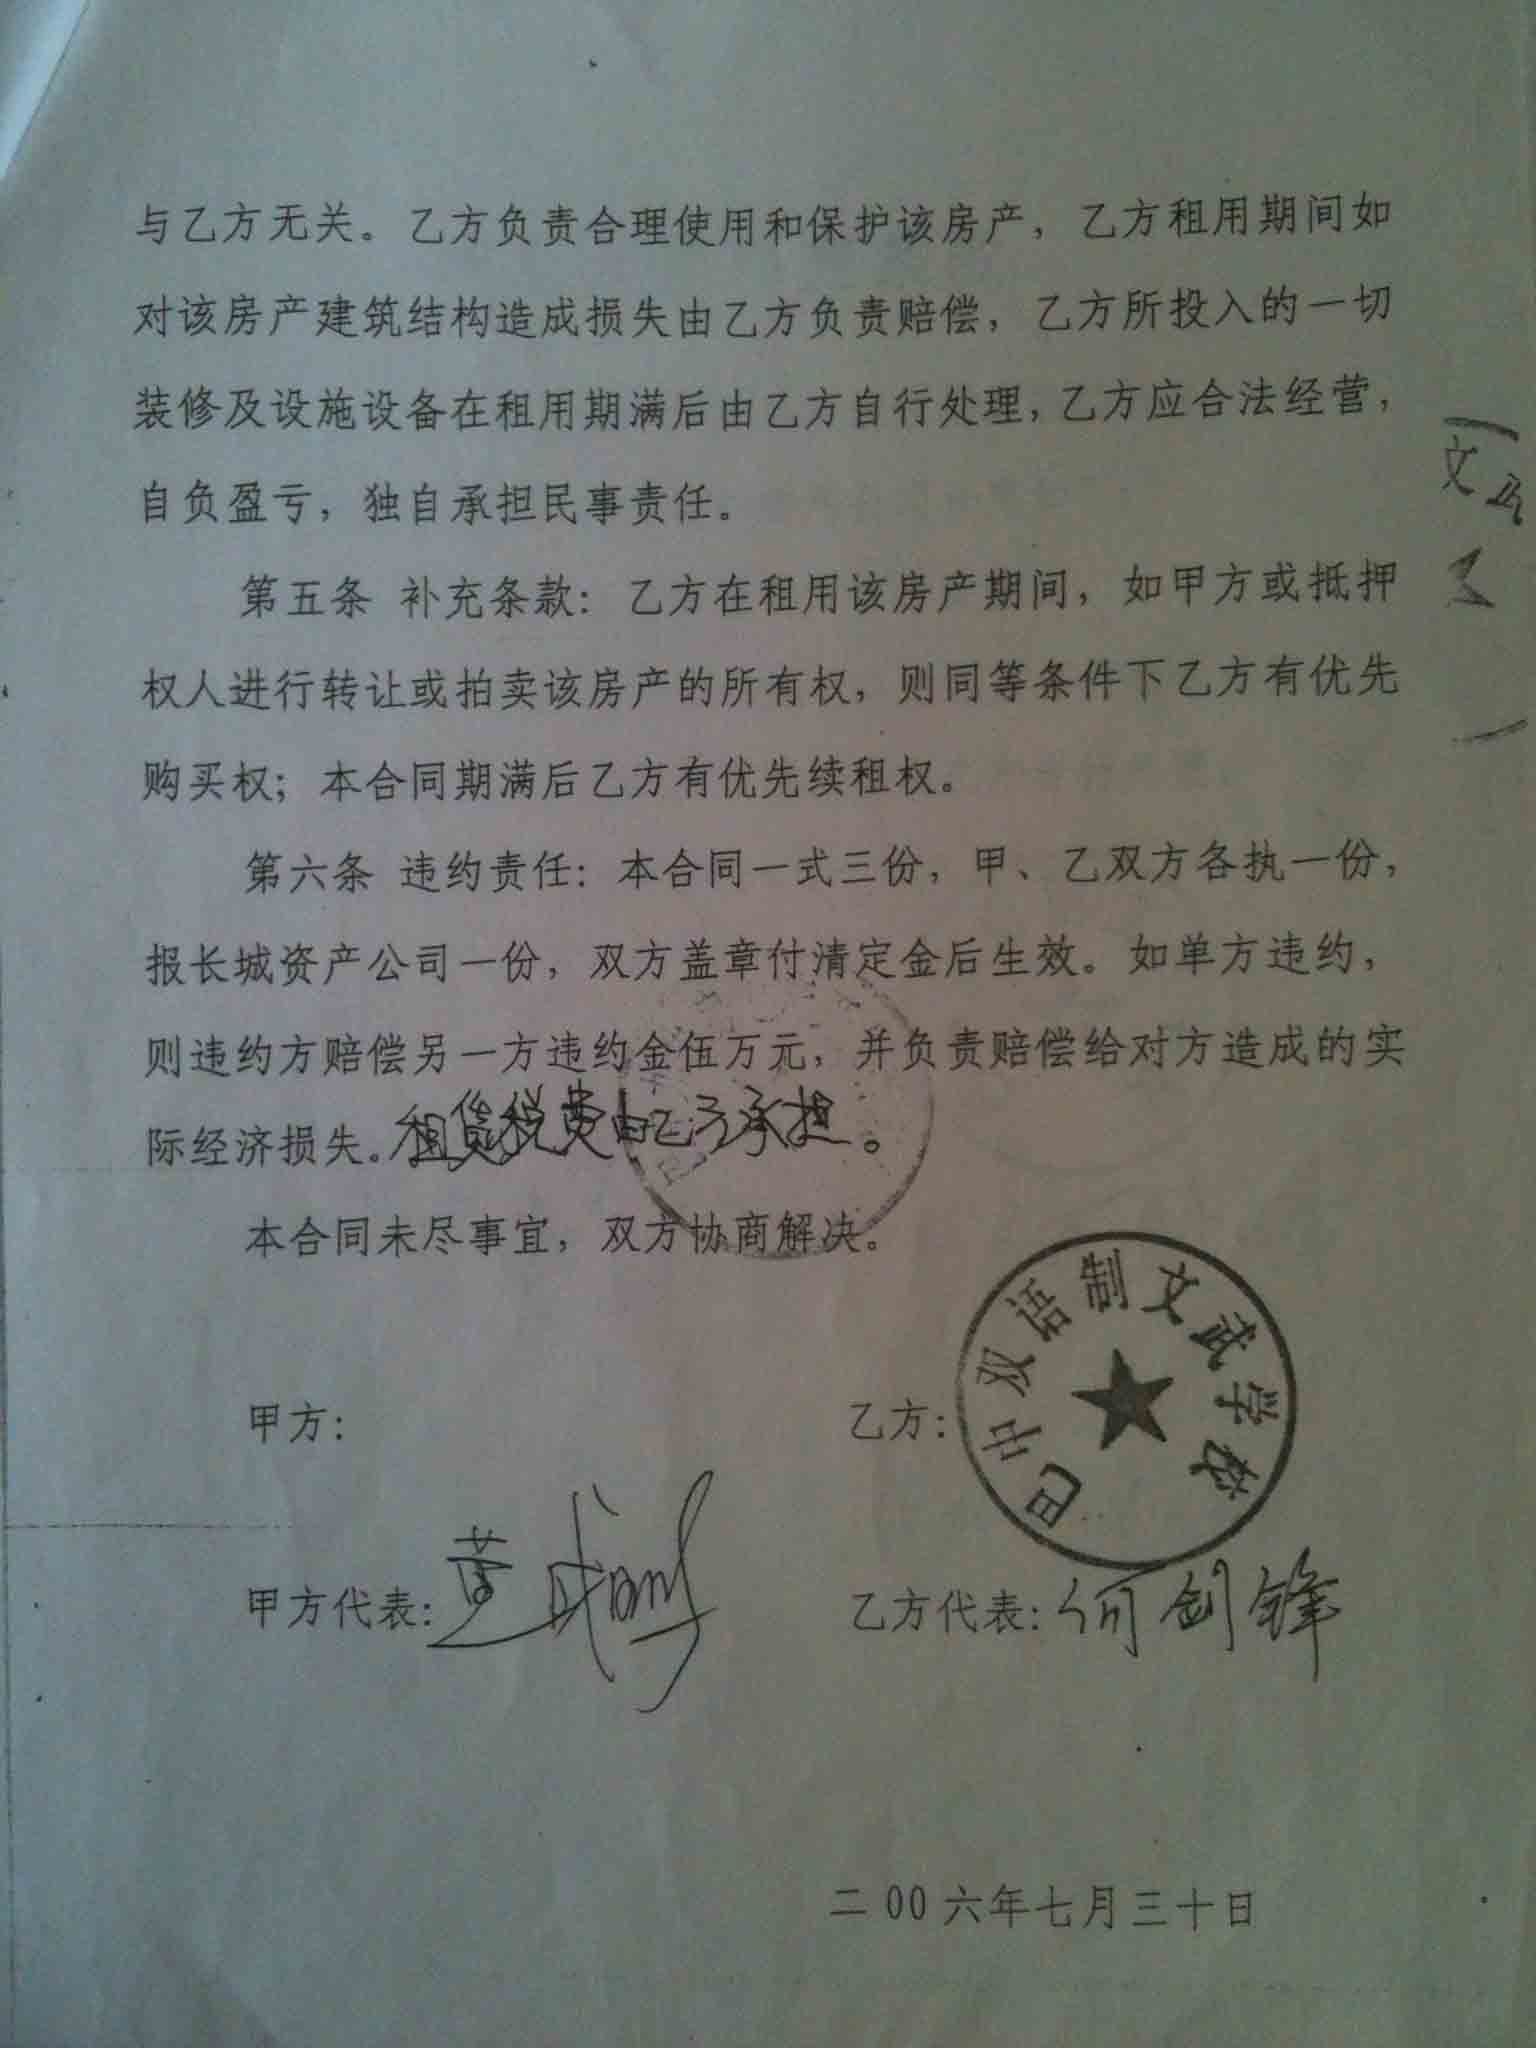 与乙方无关。乙方负责合理使用和保护该房产，乙方租用期间如
对该房产建筑结构造成损失由乙方负责赔偿，乙方所投入的一切
装修及设施设备在租用期满后由乙方自行处理，乙方应合法经营，
自负盈亏，独自承担民事责任。
第五条 补充条款：乙方在租用该房产期间，如甲方或抵押
权人进行转让或拍卖该房产的所有权，则同等条件下乙方有优先
购买权；本合同期满后乙方有优先续租权。
第六条 违约责任：本合同一式三份，甲、乙双方各执一份，
报长城资产公司一份，双方盖章付清定金后生效。如单方违约，
则违约方赔偿另一方违约金伍万元，并负责赔偿给对方造成的实
际经济损失。租赁税费由乙方承担。
本合同未尽事宜，双方协商解决。
巴中双语制文武学校
甲方：
乙方：
甲方代表：
乙方代表：何剑锋
二00六年七月三十日